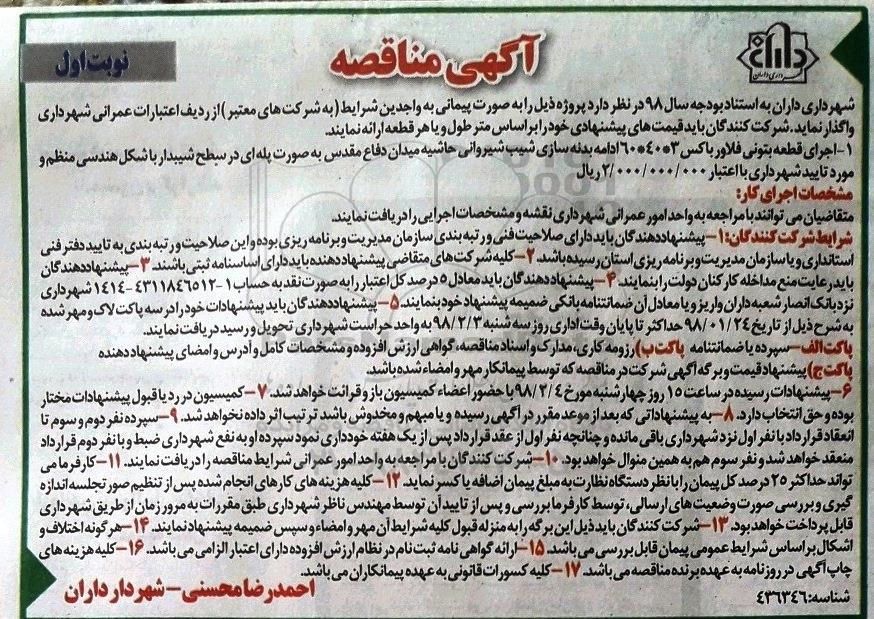 داران
شهرداری داران
آگهی مناقصه
نوبت اول
شهرداری داران به استناد بودجه سال ۹۸ در نظر دارد پروژه ذیل را به صورت پیمانی به واجدین شرایط (به شرکت های معتبر) از ردیف اعتبارات عمرانی شهرداری
واگذار نماید. شرکت کنندگان باید قیمت های پیشنهادی خود را بر اساس متر طول و یا هر قطعه ارائه نمایند.
۱-اجرای قطعه بتونی فلاور باکس ۳*۴۰*۶۰ ادامه بدنه سازی شیب شیروانی حاشیه میدان دفاع مقدس به صورت پله ای در سطح شیبدار با شکل هندسی منظم و
مورد تایید شهرداری با اعتبار ۲/۰۰۰/۰۰۰/۰۰۰ ریال
مشخصات اجرای کار:
متقاضیان می توانند با مراجعه به واحد امور عمرانی شهرداری نقشه و مشخصات اجرایی را دریافت نمایند.
شرایط شرکت کنندگان: ۱-پیشنهاددهندگان باید دارای صلاحیت فنی و رتبه بندی سازمان مدیریت و برنامه ریزی بوده و این صلاحیت و رتبه بندی به تایید دفتر فنی
استانداری و یا سازمان مدیریت و برنامه ریزی استان رسیده باشد. ۲-کلیه شرکت های متقاضی پیشنهاددهنده باید دارای اساسنامه ثبتی باشند. ۳-پیشنهاددهندگان
باید رعایت منع مداخله کارکنان دولت را بنمایند. ۴-پیشنهاددهندگان باید معادل ۵ درصد کل اعتبار را به صورت نقد به حساب ۱-۴۳۱۱۸۴۶۵۱۲-۱۴۱۴ شهرداری
نزد بانک انصار شعبه داران واریز و یا معادل آن ضمانتنامه بانکی ضمیمه پیشنهاد خود بنمایند. ۵-پیشنهاددهندگان باید پیشنهادات خود را در سه پاکت لاک و مهر شده
به شرح ذیل از تاریخ ۹۸/۰۱/۲۴ حداکثر تا پایان وقت اداری روز سه شنبه ۹۸/۲/۳ به واحد حراست شهرداری تحویل و رسید دریافت نمایند.
پاکت الف-سپرده یا ضمانتنامه پاکت ب) رزومه کاری، مدارک و اسناد مناقصه، گواهی ارزش افزوده و مشخصات کامل و آدرس و امضای پیشنهاددهنده
پاکت ج) پیشنهاد قیمت و برگه آگهی شرکت در مناقصه که توسط پیمانکار مهر و امضاء شده باشد.
۶-پیشنهادات رسیده در ساعت ۱۵ روز چهارشنبه مورخ ۹۸/۲/۴ با حضور اعضاء کمیسیون باز و قرائت خواهد شد. ۷-کمیسیون در رد یا قبول پیشنهادات مختار
بوده و حق انتخاب دارد. ۸-به پیشنهاداتی که بعد از موعد مقرر در آگهی رسیده و یا مبهم و مخدوش باشد ترتیب اثر داده نخواهد شد. ۹-سپرده نفر دوم و سوم تا
انعقاد قرارداد با نفر اول نزد شهرداری باقی مانده و چنانچه نفر اول از عقد قرارداد پس از یک هفته خودداری نمود سپرده او به نفع شهرداری ضبط و با نفر دوم قرارداد
منعقد خواهد شد و نفر سوم هم به همین منوال خواهد بود. ۱۰-شرکت کنندگان با مراجعه به واحد امور عمرانی شرایط مناقصه را دریافت نمایند. ۱۱-کارفرما می
تواند حداکثر ۲۵ درصد کل پیمان را با نظر دستگاه نظارت به مبلغ پیمان اضافه یا کسر نماید. ۱۲-کلیه هزینه های کارهای انجام شده پس از تنظیم صورتجلسه اندازه
گیری و بررسی صورت وضعیت های ارسالی، توسط کارفرما بررسی و پس از تایید آن توسط مهندس ناظر شهرداری طبق مقررات به مرور زمان از طریق شهرداری
قابل پرداخت خواهد بود. ۱۳-شرکت کنندگان باید ذیل این برگه را به منزله قبول کلیه شرایط آن مهر و امضاء و سپس ضمیمه پیشنهاد نمایند. ۱۴-هرگونه اختلاف و
اشکال بر اساس شرایط عمومی پیمان قابل بررسی می باشد. ۱۵-ارائه گواهی نامه ثبت نام در نظام ارزش افزوده دارای اعتبار الزامی می باشد. ۱۶-کلیه هزینه های
چاپ آگهی در روزنامه به عهده برنده مناقصه می باشد. ۱۷-کلیه کسورات قانونی به عهده پیمانکاران می باشد.
شناسه: ۴۳۶۳۴۶
احمدرضا محسنی-شهردار داران